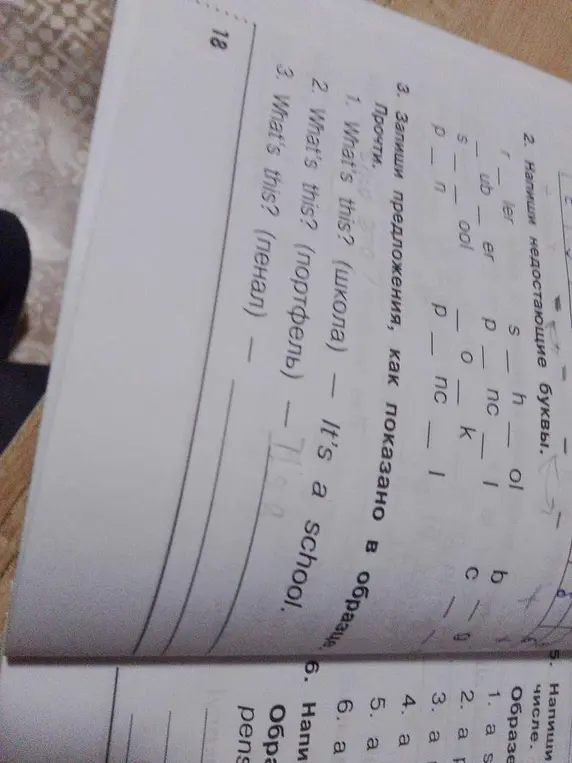 2. Напиши недостающие буквы.
r _ ler s _ h _ ol b _ g
_ ub _ er p _ nc _ l c _
s _ _ ool _ o _ k
p _ n p _ nc _ l
3. Запиши предложения, как показано в образце.
Прочти.
1. What's this? (школа) — It's a school.
2. What's this? (портфель) —
3. What's this? (пенал) —
18
5. Напиши
числе.
Образе
1. a s
2. a p
3. a
4. a
5. a
6. a
6. Напи
Обра
pens